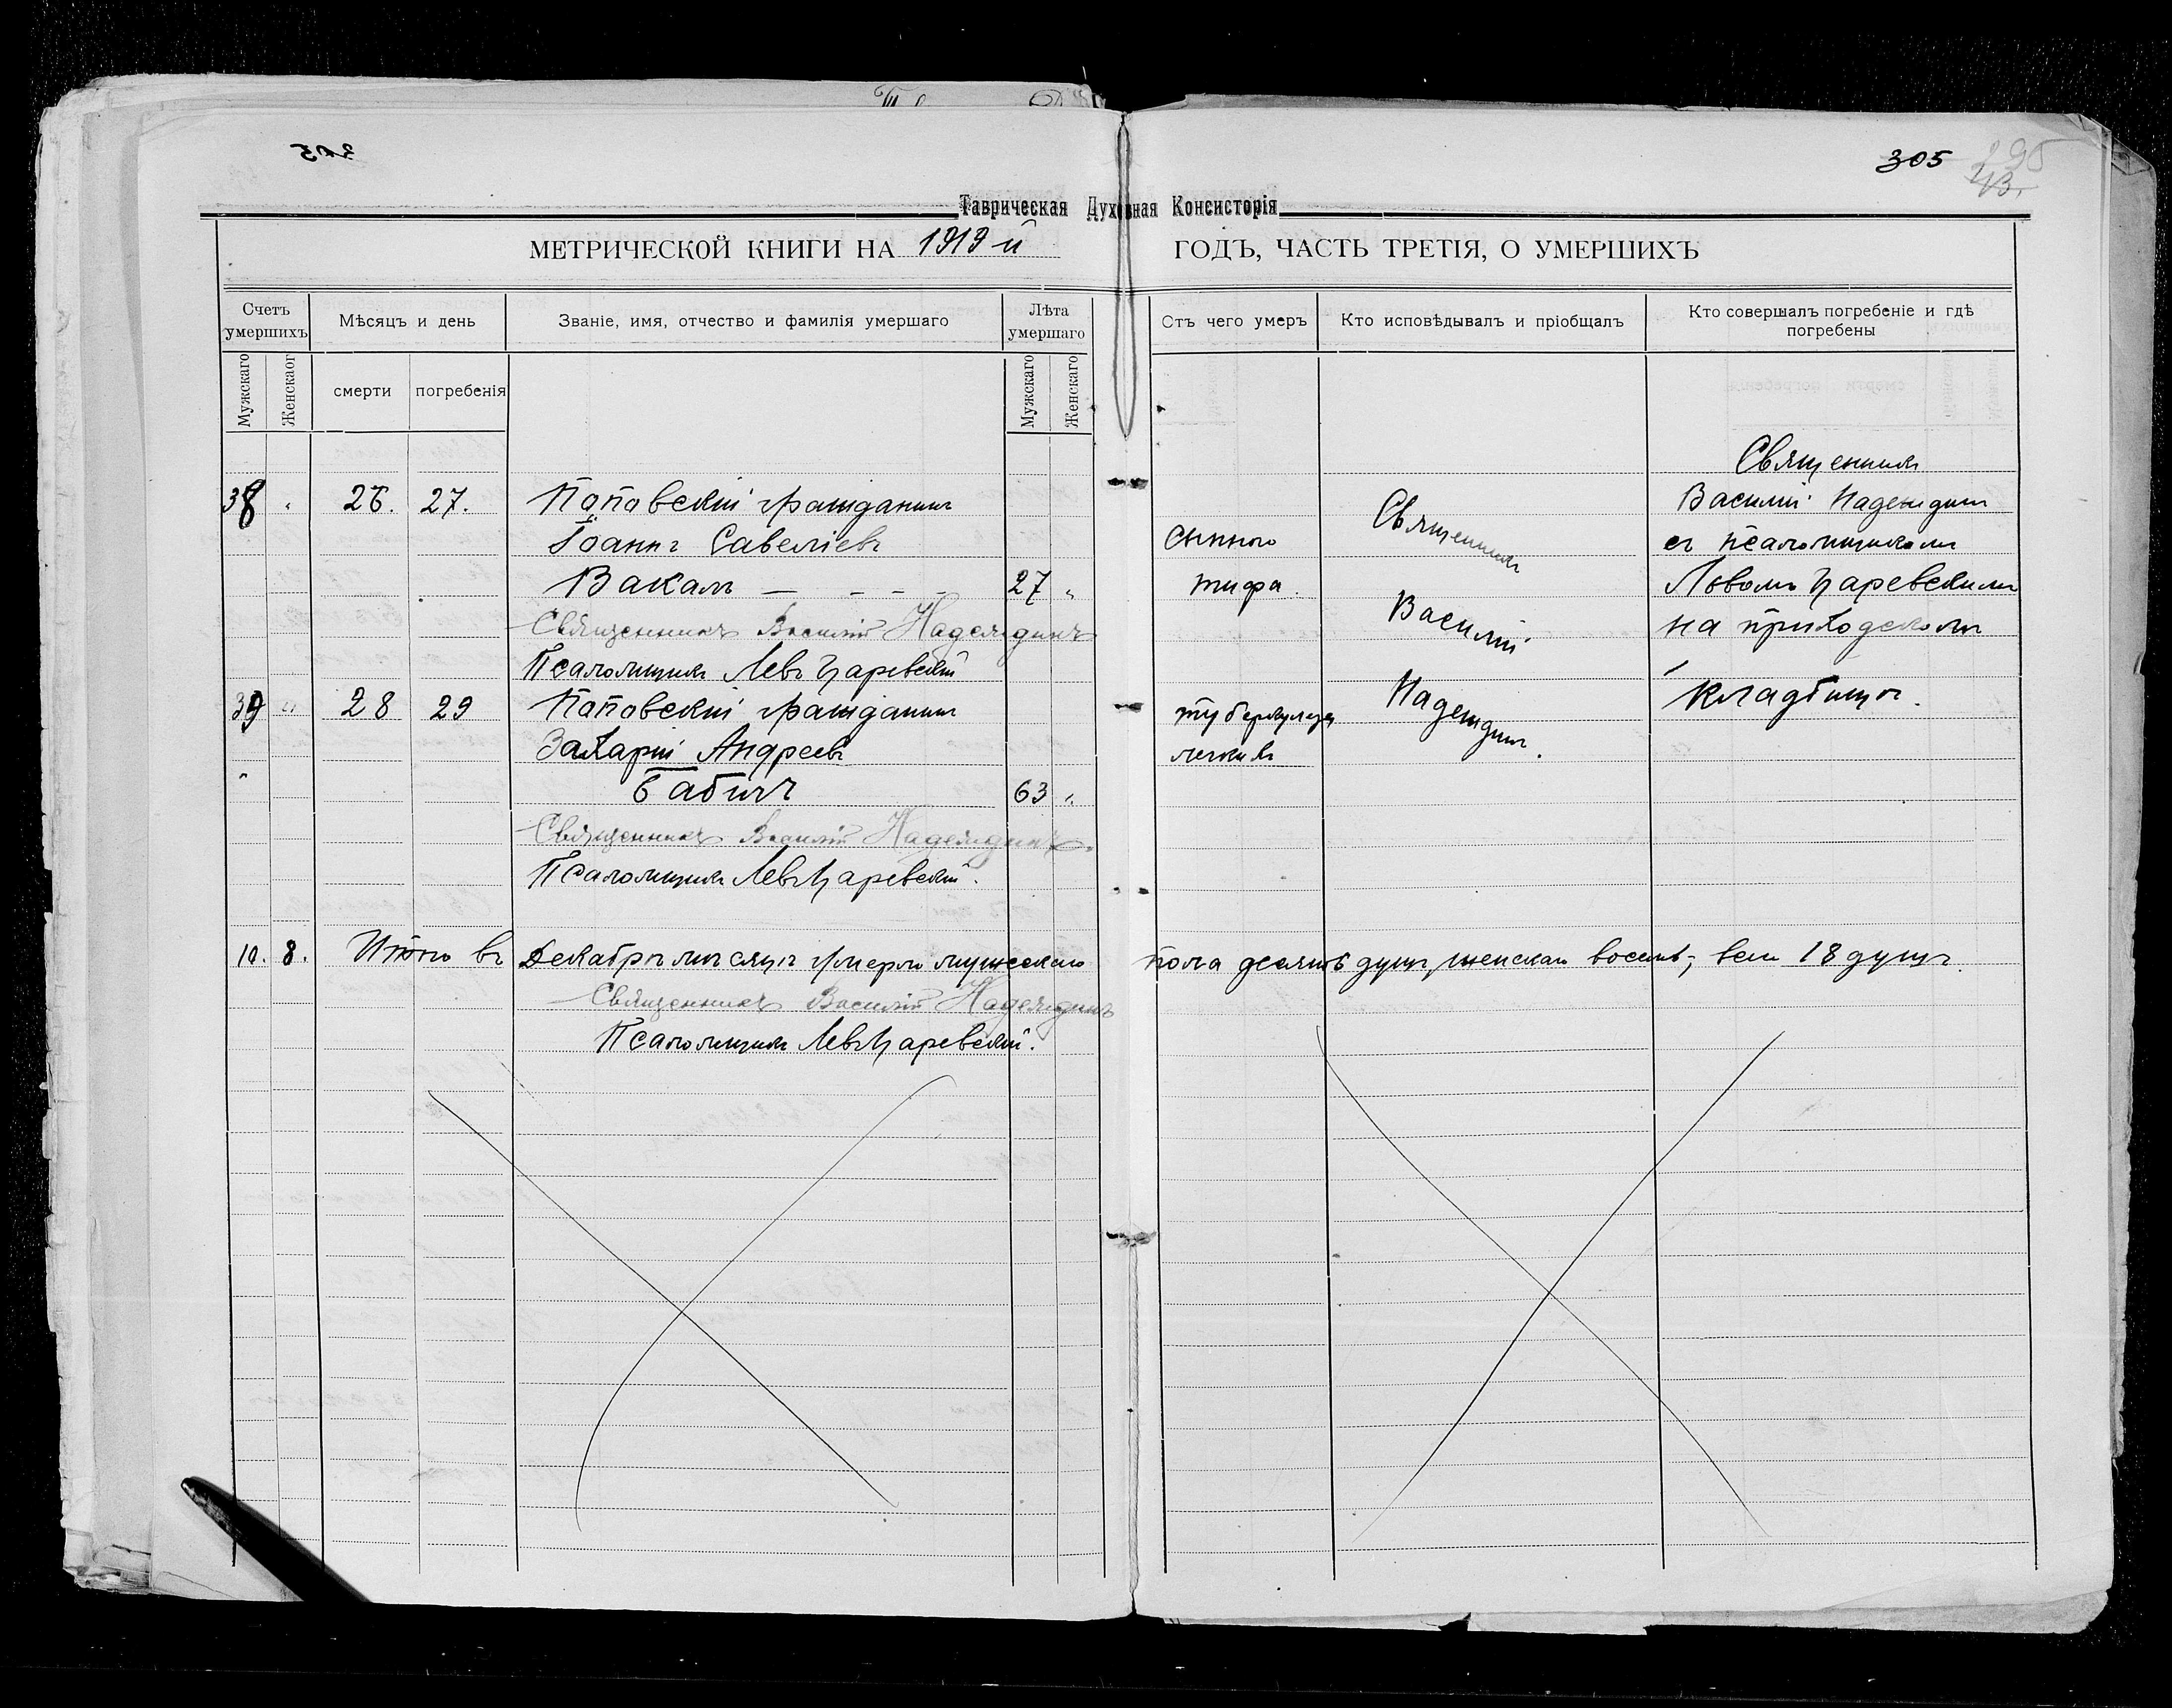 305
Таврическая Духовная Консисторія
МЕТРИЧЕСКОЙ КНИГИ НА 1919 й ГОДЪ, ЧАСТЬ ТРЕТІЯ, О УМЕРШИХЪ
Счетъ умершихъ
Мѣсяцъ и день
Званіе, имя, отчество и фамилія умершаго
Лѣта умершаго
Стъ чего умеръ
Кто исповѣдывалъ и пріобщалъ
Кто совершалъ погребеніе и гдѣ погребены
Мужскаго
Женскаог
смерти
погребенія
Мужскаго
Женскаго
38 " 26. 27. Поповскій гражданинъ
Іоаннъ Савеліевъ
Вакалъ — — — — 27 "
Священникъ Василій Надеждинъ
Псаломщикъ Левъ Царевскій
сыпного
тифа.
Священникъ
Василій
Надеждинъ.
Священникъ
Василій Надеждинъ
съ псаломщикомъ
Львомъ Царевскимъ
на приходскомъ
кладбищѣ.
39 " 28 29 Поповскій гражданинъ
Захарій Андреевъ
Бабичъ 63 "
Священникъ Василій Надеждинъ
Псаломщикъ Левъ Царевскій.
туберкулеза
легкихъ
10. 8. Итого въ Декабрѣ мѣсяцѣ умерло мужескаго пола десять душъ, женскаго восемь, всего 18 душъ.
Священникъ Василій Надеждинъ
Псаломщикъ Левъ Царевскій.